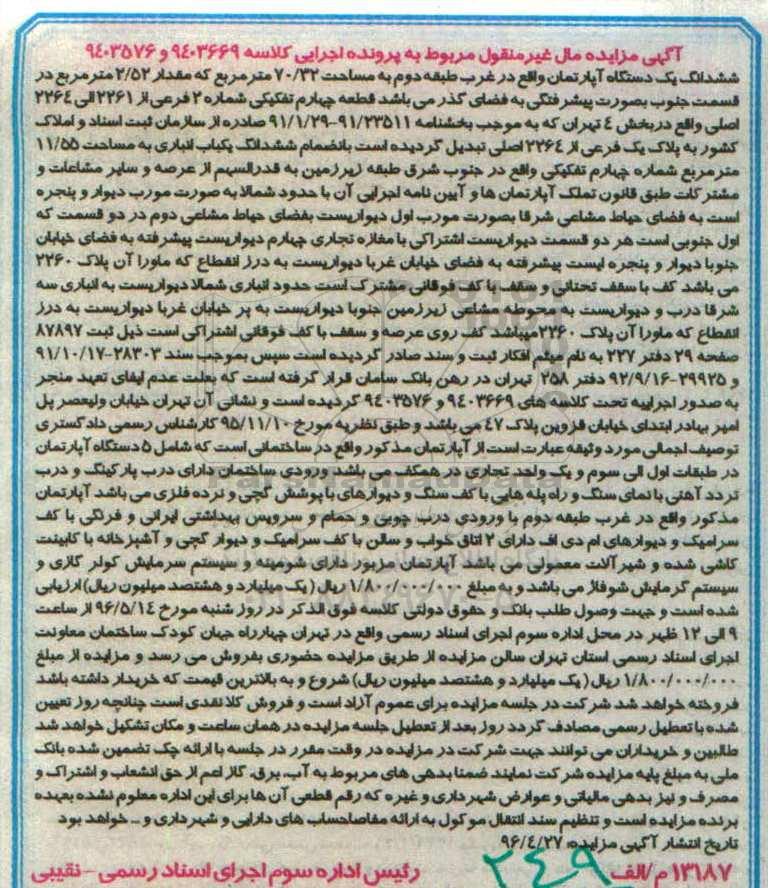 آگهی مزایده مال غیرمنقول مربوط به پرونده اجرایی کلاسه ۹۴۰۳۶۶۹ و ۹۴۰۳۵۷۶
ششدانگ یک دستگاه آپارتمان واقع در غرب طبقه دوم به مساحت ۷۰/۳۲ مترمربع که مقدار ۲/۵۲ مترمربع در
قسمت جنوب بصورت پیشرفتگی به فضای گذر می باشد قطعه چهارم تفکیکی شماره ۲ فرعی از ۲۲۶۱ الی ۲۲۶۴
اصلی واقع دربخش ۴ تهران که به موجب بخشنامه ۹۱/۲۳۵۱۱-۹۱/۱/۲۹ صادره از سازمان ثبت اسناد و املاک
کشور به پلاک یک فرعی از ۲۲۶۴ اصلی تبدیل گردیده است بانضمام ششدانگ یکباب انباری به مساحت ۱۱/۵۵
مترمربع شماره چهارم تفکیکی واقع در جنوب شرق طبقه زیرزمین به قدرالسهم از عرصه و سایر مشاعات و
مشترکات طبق قانون تملک آپارتمان ها و آیین نامه اجرایی آن با حدود شمالا به صورت مورب دیوار و پنجره
است به فضای حیاط مشاعی شرقا بصورت مورب اول دیواریست بفضای حیاط مشاعی دوم در دو قسمت که
اول جنوبی است هر دو قسمت دیواریست اشتراکی با مغازه تجاری چهارم دیواریست پیشرفته به فضای خیابان
جنوبا دیوار و پنجره ایست پیشرفته به فضای خیابان غربا دیواریست به درز انقطاع که ماورا آن پلاک ۲۲۶۰
می باشد کف با سقف تحتانی و سقف با کف فوقانی مشترک است حدود انباری شمالا دیواریست به انباری سه
شرقا درب و دیواریست به محوطه مشاعی زیرزمین جنوبا دیواریست به پر خیابان غربا دیواریست به درز
انقطاع که ماورا آن پلاک ۲۲۶۰ میباشد کف روی عرصه و سقف با کف فوقانی اشتراکی است ذیل ثبت ۸۷۸۹۷
صفحه ۲۹ دفتر ۲۲۷ به نام میثم افکار ثبت و سند صادر گردیده است سپس بموجب سند ۲۸۳۰۳-۹۱/۱۰/۱۷
و ۲۹۹۲۵-۹۲/۹/۱۶ دفتر ۲۵۸ تهران در رهن بانک سامان قرار گرفته است که بعلت عدم ایفای تعهد منجر
به صدور اجراییه تحت کلاسه های ۹۴۰۳۶۶۹ و ۹۴۰۳۵۷۶ گردیده است و نشانی آن تهران خیابان ولیعصر پل
امیر بهادر ابتدای خیابان قزوین پلاک ۴۷ می باشد و طبق نظریه مورخ ۹۵/۱۱/۱۰ کارشناس رسمی دادگستری
توصیف اجمالی مورد وثیقه عبارت است از آپارتمان مذکور واقع در ساختمانی است که شامل ۵ دستگاه آپارتمان
در طبقات اول الی سوم و یک واحد تجاری در همکف می باشد ورودی ساختمان دارای درب پارکینگ و درب
تردد آهنی با نمای سنگ و راه پله هایی با کف سنگ و دیوارهای با پوشش گچی و نرده فلزی می باشد آپارتمان
مذکور واقع در غرب طبقه دوم با ورودی درب چوبی و حمام و سرویس بهداشتی ایرانی و فرنگی با کف
سرامیک و دیوارهای ام دی اف دارای ۲ اتاق خواب و سالن با کف سرامیک و دیوار گچی و آشپزخانه با کابینت
کاشی شده و شیرآلات معمولی می باشد آپارتمان مزبور دارای شومینه و سیستم سرمایش کولر گازی و
سیستم گرمایش شوفاژ می باشد و به مبلغ ۱/۸۰۰/۰۰۰/۰۰۰ ریال (یک میلیارد و هشتصد میلیون ریال) ارزیابی
شده است و جهت وصول طلب بانک و حقوق دولتی کلاسه فوق الذکر در روز شنبه مورخ ۹۶/۵/۱۴ از ساعت
۹ الی ۱۲ ظهر در محل اداره سوم اجرای اسناد رسمی واقع در تهران چهارراه جهان کودک ساختمان معاونت
اجرای اسناد رسمی استان تهران سالن مزایده از طریق مزایده حضوری بفروش می رسد و مزایده از مبلغ
۱/۸۰۰/۰۰۰/۰۰۰ ریال (یک میلیارد و هشتصد میلیون ریال) شروع و به بالاترین قیمت که خریدار داشته باشد
فروخته خواهد شد شرکت در جلسه مزایده برای عموم آزاد است و فروش کلا نقدی است چنانچه روز تعیین
شده با تعطیل رسمی مصادف گردد روز بعد از تعطیل جلسه مزایده در همان ساعت و مکان تشکیل خواهد شد
طالبین و خریداران می توانند جهت شرکت در مزایده در وقت مقرر در جلسه با ارائه چک تضمین شده بانک
ملی به مبلغ پایه مزایده شرکت نمایند ضمنا بدهی های مربوط به آب، برق، گاز اعم از حق انشعاب و اشتراک و
مصرف و نیز بدهی مالیاتی و عوارض شهرداری و غیره که رقم قطعی آن ها برای این اداره معلوم نشده بعهده
برنده مزایده است و تنظیم سند انتقال موکول به ارائه مفاصاحساب های دارایی و شهرداری و ... خواهد بود
تاریخ انتشار آگهی مزایده: ۹۶/۴/۲۷
۱۳۱۸۷ م/الف رئیس اداره سوم اجرای اسناد رسمی - نقیبی
۲۴۹